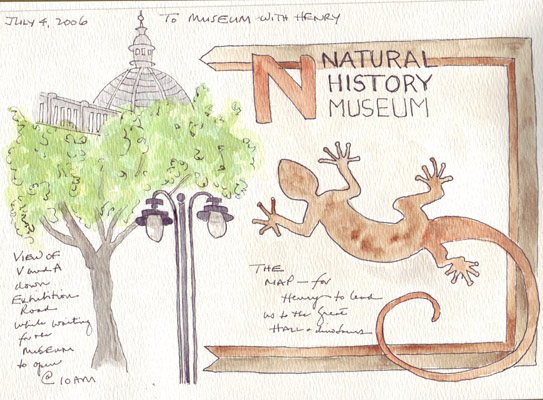 JULY 4, 2006
TO MUSEUM WITH HENRY
N NATURAL
HISTORY
MUSEUM
VIEW OF
V and A
down
Exhibition
Road
while waiting
for the
MUSEUM
to open
@ 10AM
THE
MAP - for
Henry to lead
us to the Great
HALL of dinosaurs